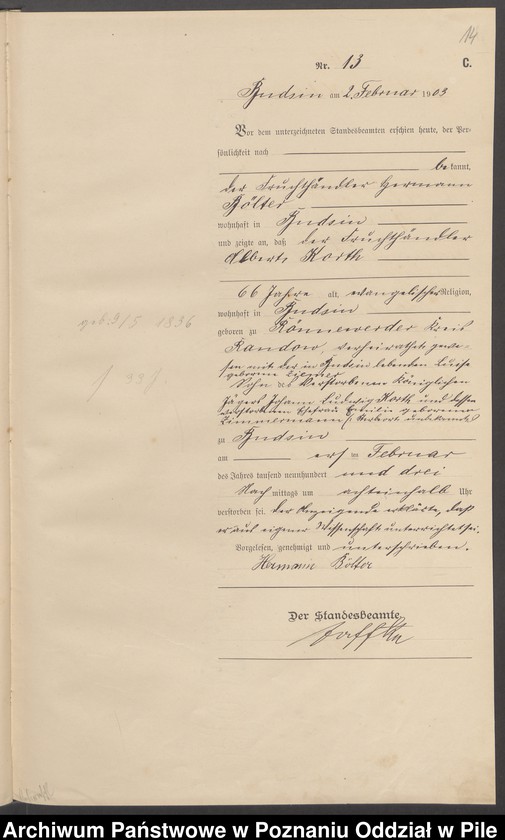 14
Nr. 13 C.
Budsin am 2. Februar 1903
Vor dem unterzeichneten Standesbeamten erschien heute, der Per-
sönlichkeit nach
bekannt,
der Fruchthändler Hermann
Bölter
wohnhaft in Budsin
und zeigte an, daß der Fruchthändler
Albert Korth
66 Jahre alt, evangelischer Religion,
wohnhaft in Budsin
geboren zu Rönnewerder Kreis
Randow, verheirathet gewe-
sen mit der in Budsin lebenden Luise
geborene Ziemer
Sohn des verstorbenen Königlichen
Jägers Johann Ludwig Korth und dessen
verstorbenen Ehefrau Emilie geborenen
Zimmermann (Sterbeort unbekannt)
zu Budsin
am ersten Februar
des Jahres tausend neunhundert und drei
Nach mittags um achteinhalb Uhr
verstorben sei. Der Anzeigende erklärte, daß
er aus eigener Wissenschaft unterrichtet sei.
Vorgelesen, genehmigt und unterschrieben.
Hermann Bölter
Der Standesbeamte.
geb. 3/5 1836
Archiwum Państwowe w Poznaniu Oddział w Pile